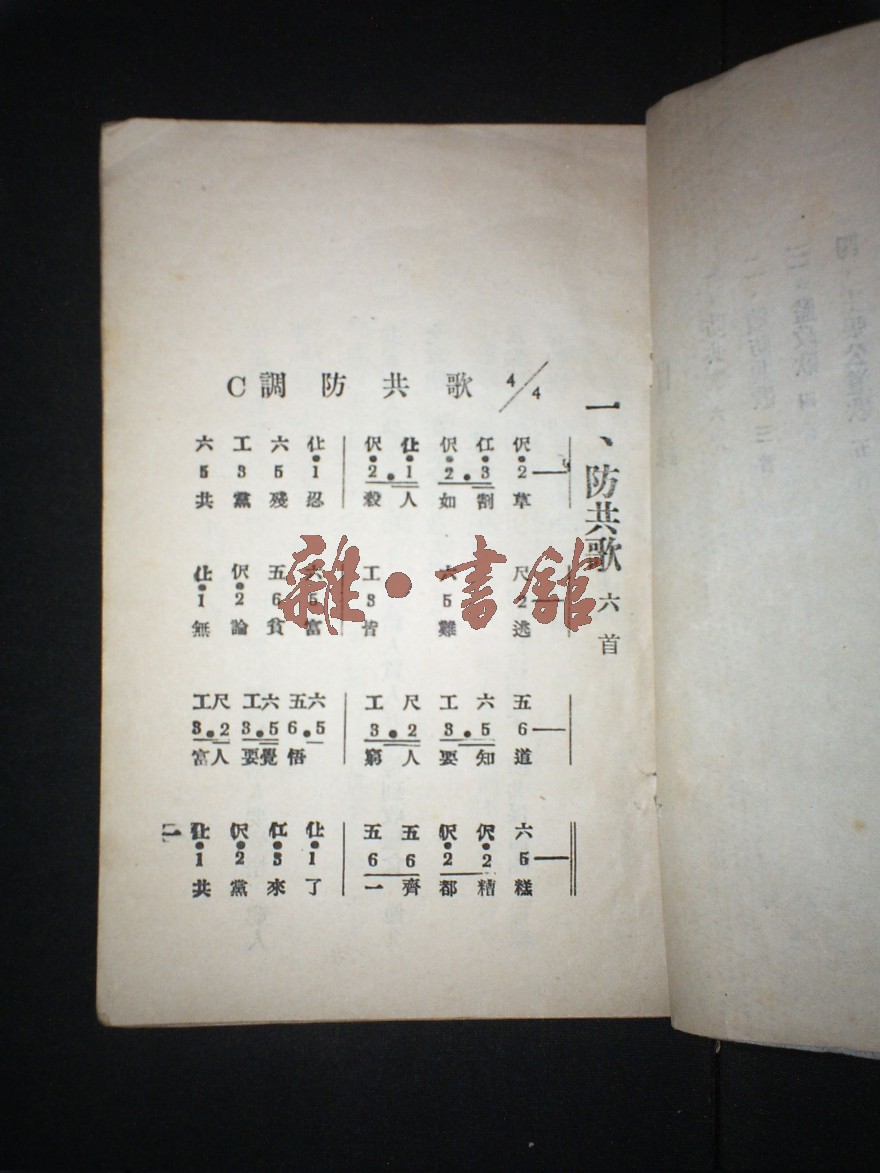 一、防共歌 六首
C調防共歌 4/4
六 工 六 仩 伬 仩 伬 仜 伬
5 3 5 1 2 . 1 2 . 3 2 —
共 黨 殘 忍 殺 人 如 割 草
仩 伬 五 六 工 六 尺
1 2 6 5 3 5 2 —
無 論 貧 富 皆 難 逃
工尺 工六 五六 工 尺 工 六 五
3 . 2 3 . 5 6 . 5 3 . 2 3 . 5 6 —
富人 要覺 悟 窮 人 要 知 道
仩 伬 仜 仩 五 五 伬 伬 六
1 2 3 1 6 6 2 2 5 —
共 黨 來 了 一 齊 都 糟 糕
二
雜·書館